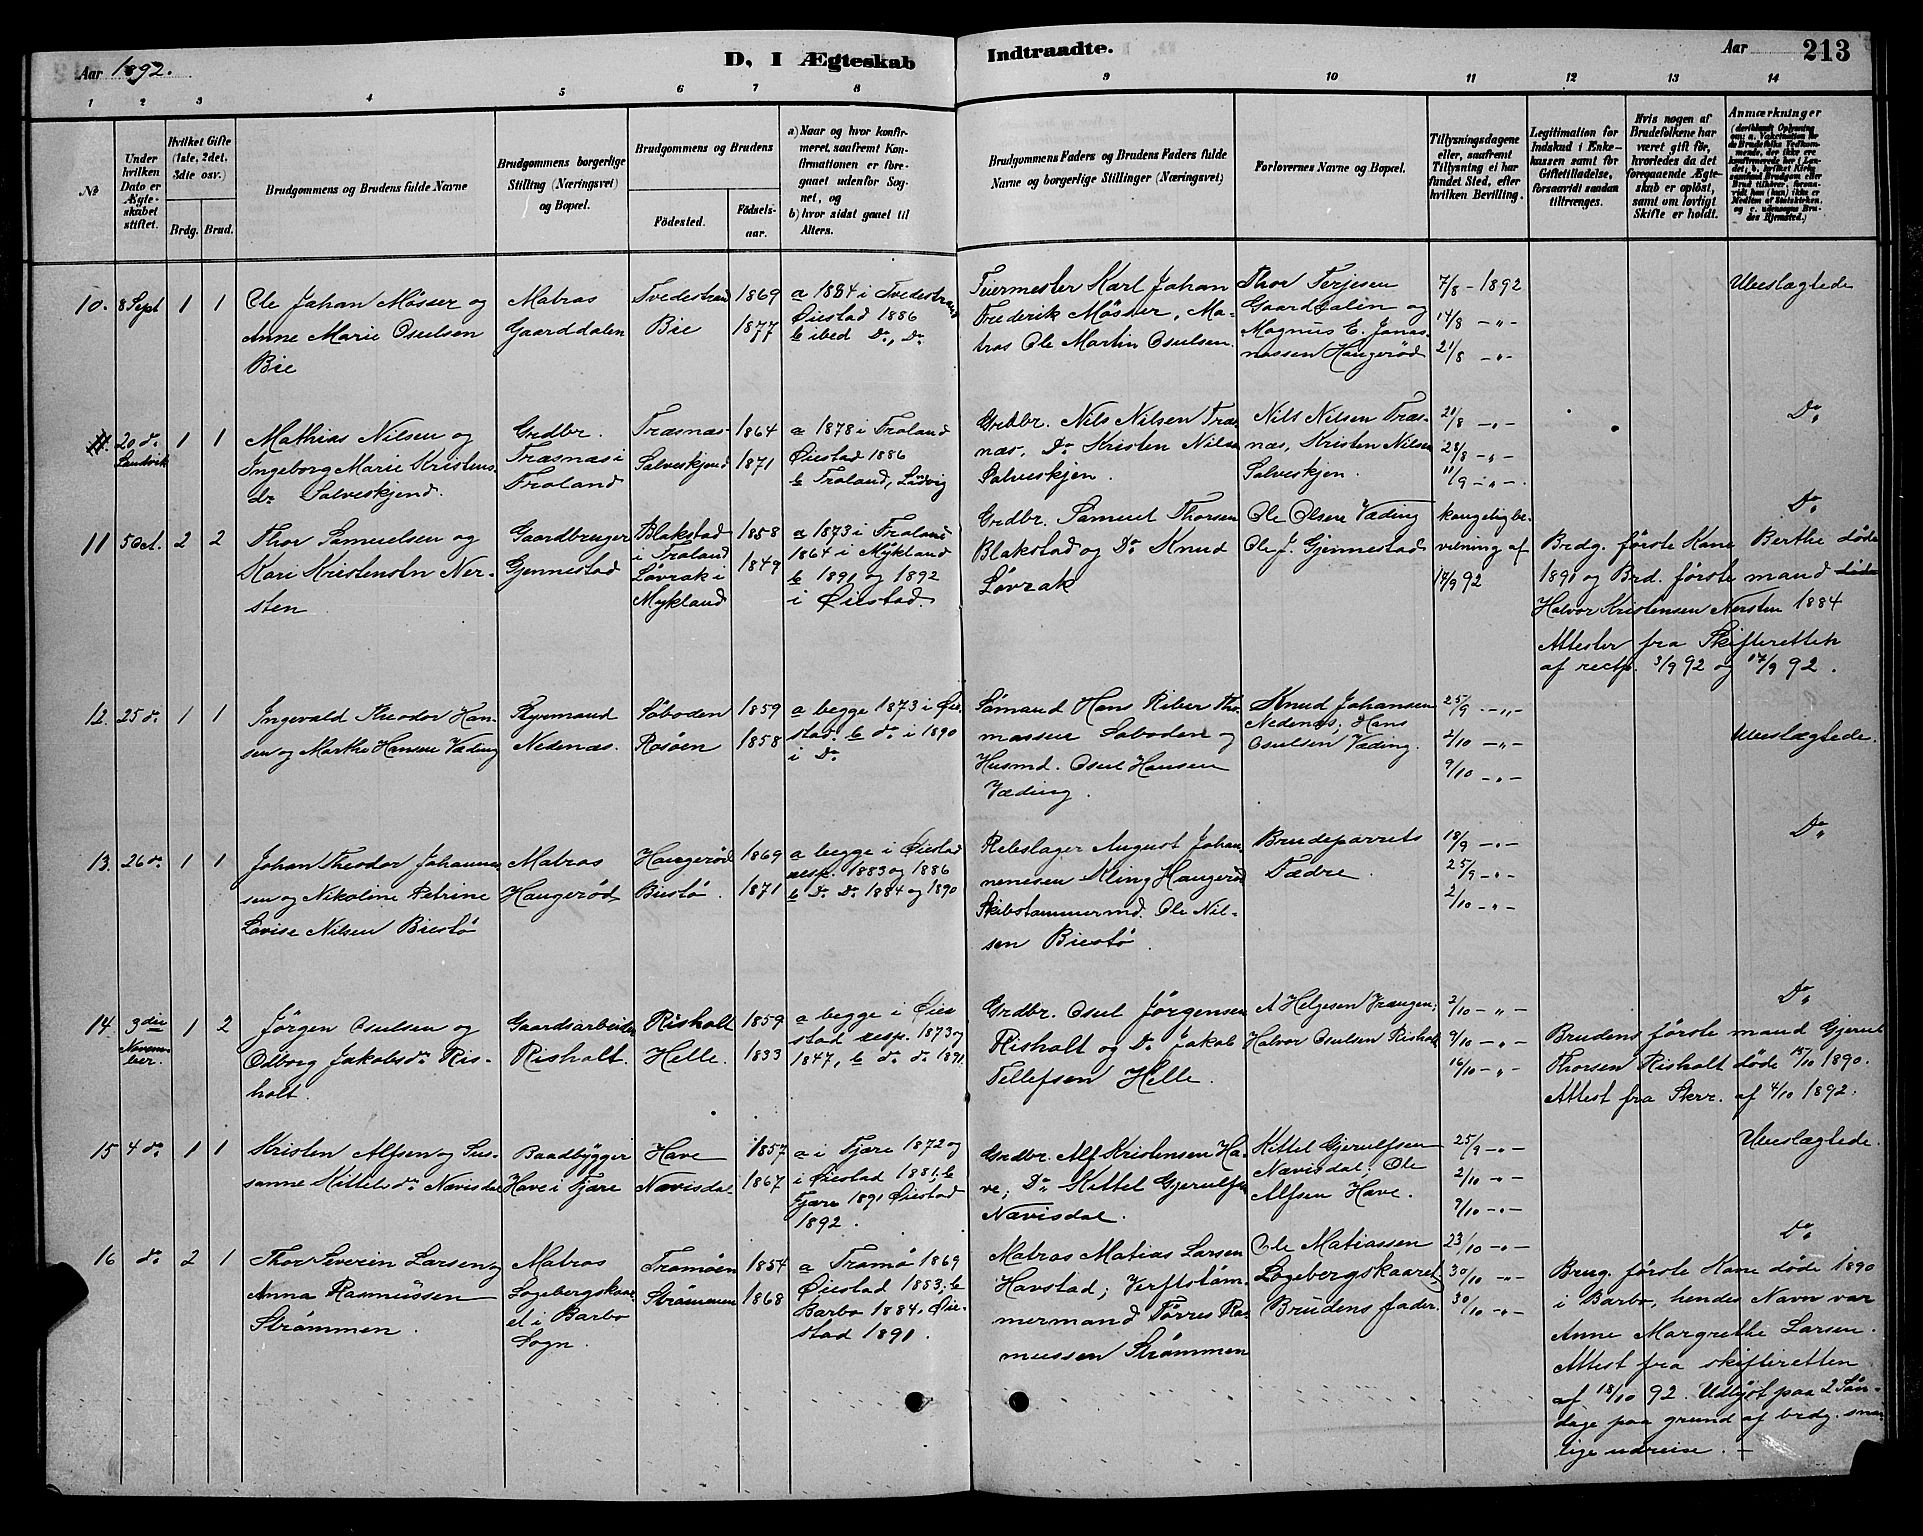 Aar 1892.
D, I Ægteskab Indtraadte.
Aar
213
1 2 3 4 5 6 7 8 9 10 11 12 13 14
№
Under hvilken Dato er Ægteskabet stiftet.
Hvilket Gifte (1ste, 2det, 3die osv.)
Brdg. Brud.
Brudgommens og Brudens fulde Navne
Brudgommens borgerlige Stilling (Næringsvei) og Bopæl.
Brudgommens og Brudens
Födested.
Födselsaar.
a) Naar og hvor konfirmeret, saafremt Konfirmationen er foregaaet udenfor Sognet, og
b) hvor sidst gaaet til Alters.
Brudgommens Faders og Brudens Faders fulde Navne og borgerlige Stillinger (Næringsvei)
Forlovernes Navne og Bopæl.
Tillysningsdagene eller, saafremt Tillysning ei har fundet Sted, efter hvilken Bevilling.
Legitimation for Indskud i Enkekassen samt for Giftetilladelse, forsaavidt saadan tiltrænges.
Hvis nogen af Brudefolkene har været gift för, hvorledes da det foregaaende Ægteskab er oplöst, samt om lovligt Skifte er holdt.
Anmærkninger
10. 8 Sept 1 1
Ole Johan Mösser og
Anne Marie Osulsen
Bie
Matros
Gaarddalen
Tvedestrand 1869
Bie 1877
a 1884 i Tvedestrand
Øiestad 1886
b ibed Do, Do
Feiermester Karl Johan
Frederik Mösser, Ma-
tros Ole Martin Osulsen
Thor Terjesen
Gaarddalen og
Magnus E. Jona-
nassen Haugeröd
7/8 - 1892
14/8 - " -
21/8 - " -
Ubeslægtede
11. 20 do 1 1
Landvik
Mathias Nilsen og
Ingeborg Marie Kristens
dr Salveskjend.
Grdbr.
Træsnæs i
Froland
Træsnæs 1864
Salveskjend 1871
a 1878 i Froland
Øiestad 1886
b Froland, Ladvig
Grdbr. Nils Nilsen Træs
næs, Do Kristen Nilsen
Salveskjen.
Nils Nilsen Træs-
næs, Kristen Nilsen
Salveskjen.
21/8 - " -
28/8 - " -
11/9 - " -
Do
11 5 Oct. 2 2
Thor Samuelsen og
Kari Kristensdn Ner-
sten
Gaardbruger
Gjennestad
Blakstad i Froland 1858
Løvrak i Mykland 1849
a 1873 i Froland
1864 i Mykland
b 1891 og 1892
i Øiestad.
Grdbr. Samuel Thorsen
Blakstad og Do Knud
Løvrak
Ole Olsen Væding
Ole J. Gjennestad
kongelig be-
vilning af
14/9 92
Brdg. første Kone Berthe døde
1891 og Brd. første mand døde
Halvor Kristensen Nersten 1884
Attester fra Skifteretten
af rectp. 3/9 92 og 17/9 92.
Do
12. 25 do 1 1
Ingevald Theodor Han-
sen og Marthe Hansen Væding
Styrmand
Nedenæs.
Søboden 1859
Rosøen 1858
a begge 1873 i Øie-
stad. b do i 1890
i Do
Sømand Hans Riber Tho-
massen Soboden og
Husmd. Osul Hansen
Væding.
Knud Johansen
Nedenæs; Hans
Osulsen Væding.
25/9 - " -
2/10 - " -
9/10 - " -
Ubeslægtede.
13. 26 do 1 1
Johan Theodor Johannes-
sen og Nikoline Petrine
Lovise Nilsen Biestø
Matros
Haugeröd
Haugeröd 1869
Biestø. 1871
a begge i Øiestad
resp. 1883 og 1886
b Do Do 1884 og 1890
Rebslager August Johan-
nenesen Kling Haugeröd
Skibstømmermd. Ole Nil-
sen Biestø.
Brudeparrets
Fædre.
18/9 - " -
25/9 - " -
2/10 - " -
Do
14. 3die Novem- ber. 1 2
Jörgen Osulsen og
Odborg Jakobsdr. Ris-
holt.
Gaardsarbeider
Risholt.
Risholt 1859
Helle. 1833
a begge i Øie
stad resp. 1873 og
1847, b do do 1891.
Grdbr. Osul Jørgensen
Risholt og Do Jakob
Tellefsen Helle.
A Helgesen Vrangen;
Halvor Osulsen Risholt
2/10 - " -
9/10 - " -
16/10 - " -
Brudens første mand Gjerul
Thorsen Risholt døde 15/10 1890.
Attest fra Skrr. af 4/10 1892.
Do
15 4 do 1 1
Kristen Alfsen og Sus-
sanne Kittilsdr. Nævisdal
Baadbygger
Have i Fjære
Have 1857
Nævisdal 1867
a i Fjære 1872 og
i Øiestad 1881; b
Fjære 1891 Øiestad
1892.
Grdbr. Alf Kristensen Ha-
ve; Do Kittel Gjerulfsen
Nævisdal.
Kittel Gjerulfsen
Nævisdal; Ole
Alfsen Have.
25/9 - " -
2/10 - " -
9/10 - " -
Ubeslægtede.
16 do 2 1
Thor Severin Larsen og
Anna Rasmussen
Strømmen.
Matros
Logebergskaar-
et i Barbo
Sogn.
Tromøen 1854
Strømmen 1868
a Tromø 1869
Øiestad 1883; b
Barbo 1884, Øie-
stad 1891.
Matros Matias Larsen
Havstad; Verftstøm-
mermand Tørres Ras-
mussen Strømmen
Ole Matiassen
Logebergskaaret
Brudens fader.
23/10 - " -
30/10 - " -
30/10 - " -
Brug. første Kone døde 1890
i Barbo, hendes Navn var
Anne Margrethe Larsen.
Attest fra skifteretten
af 18/10 92. Udlyst paa 2 Søn-
dage paa grund af brdg. snar-
lige udreise. -
Do